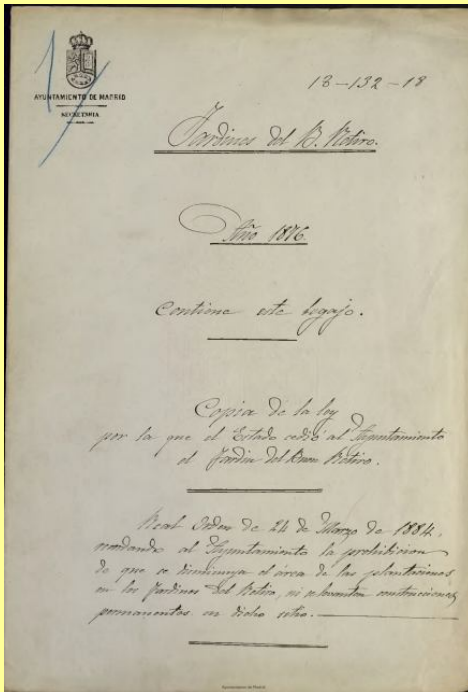 AYUNTAMIENTO DE MADRID
SECRETARÍA
13-132-18
Jardines del B. Retiro.
Año 1876.
Contiene este legajo.
Copia de la ley
por la que el Estado cedió al Ayuntamiento
el Jardin del Buen Retiro.
Real Orden de 24 de Marzo de 1884,
recordando al Ayuntamiento la prohibicion
de que se disminuya el área de las plantaciones
en los Jardines del Retiro, ni se levanten construcciones
permanentes en dicho sitio.
Ayuntamiento de Madrid